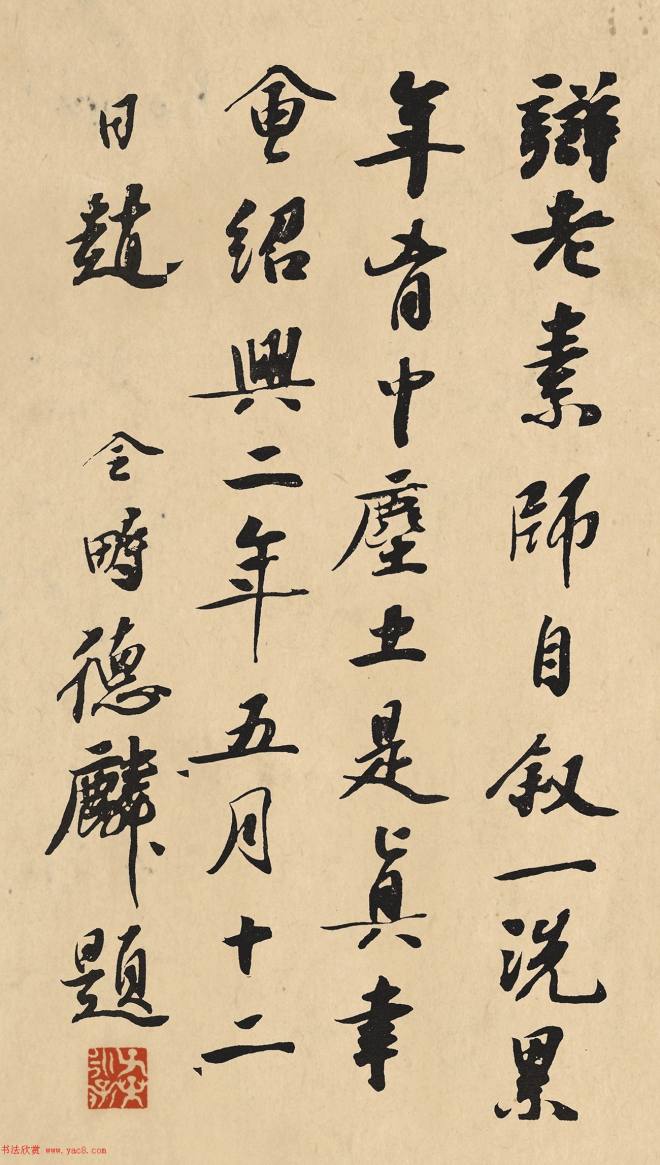 辯老素師自叙一洗累
年胷中塵土是真幸
會紹興二年五月十二
日趙 令畤德麟題
书法欣赏 www.yac8.com